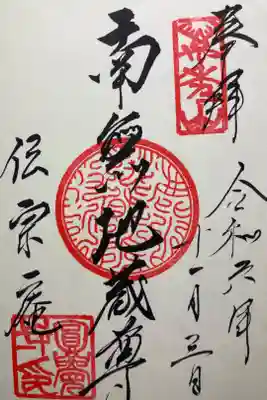 奉拝
令和六年
十一月三日
南無地蔵尊
伝宗庵
圓覺
寺印